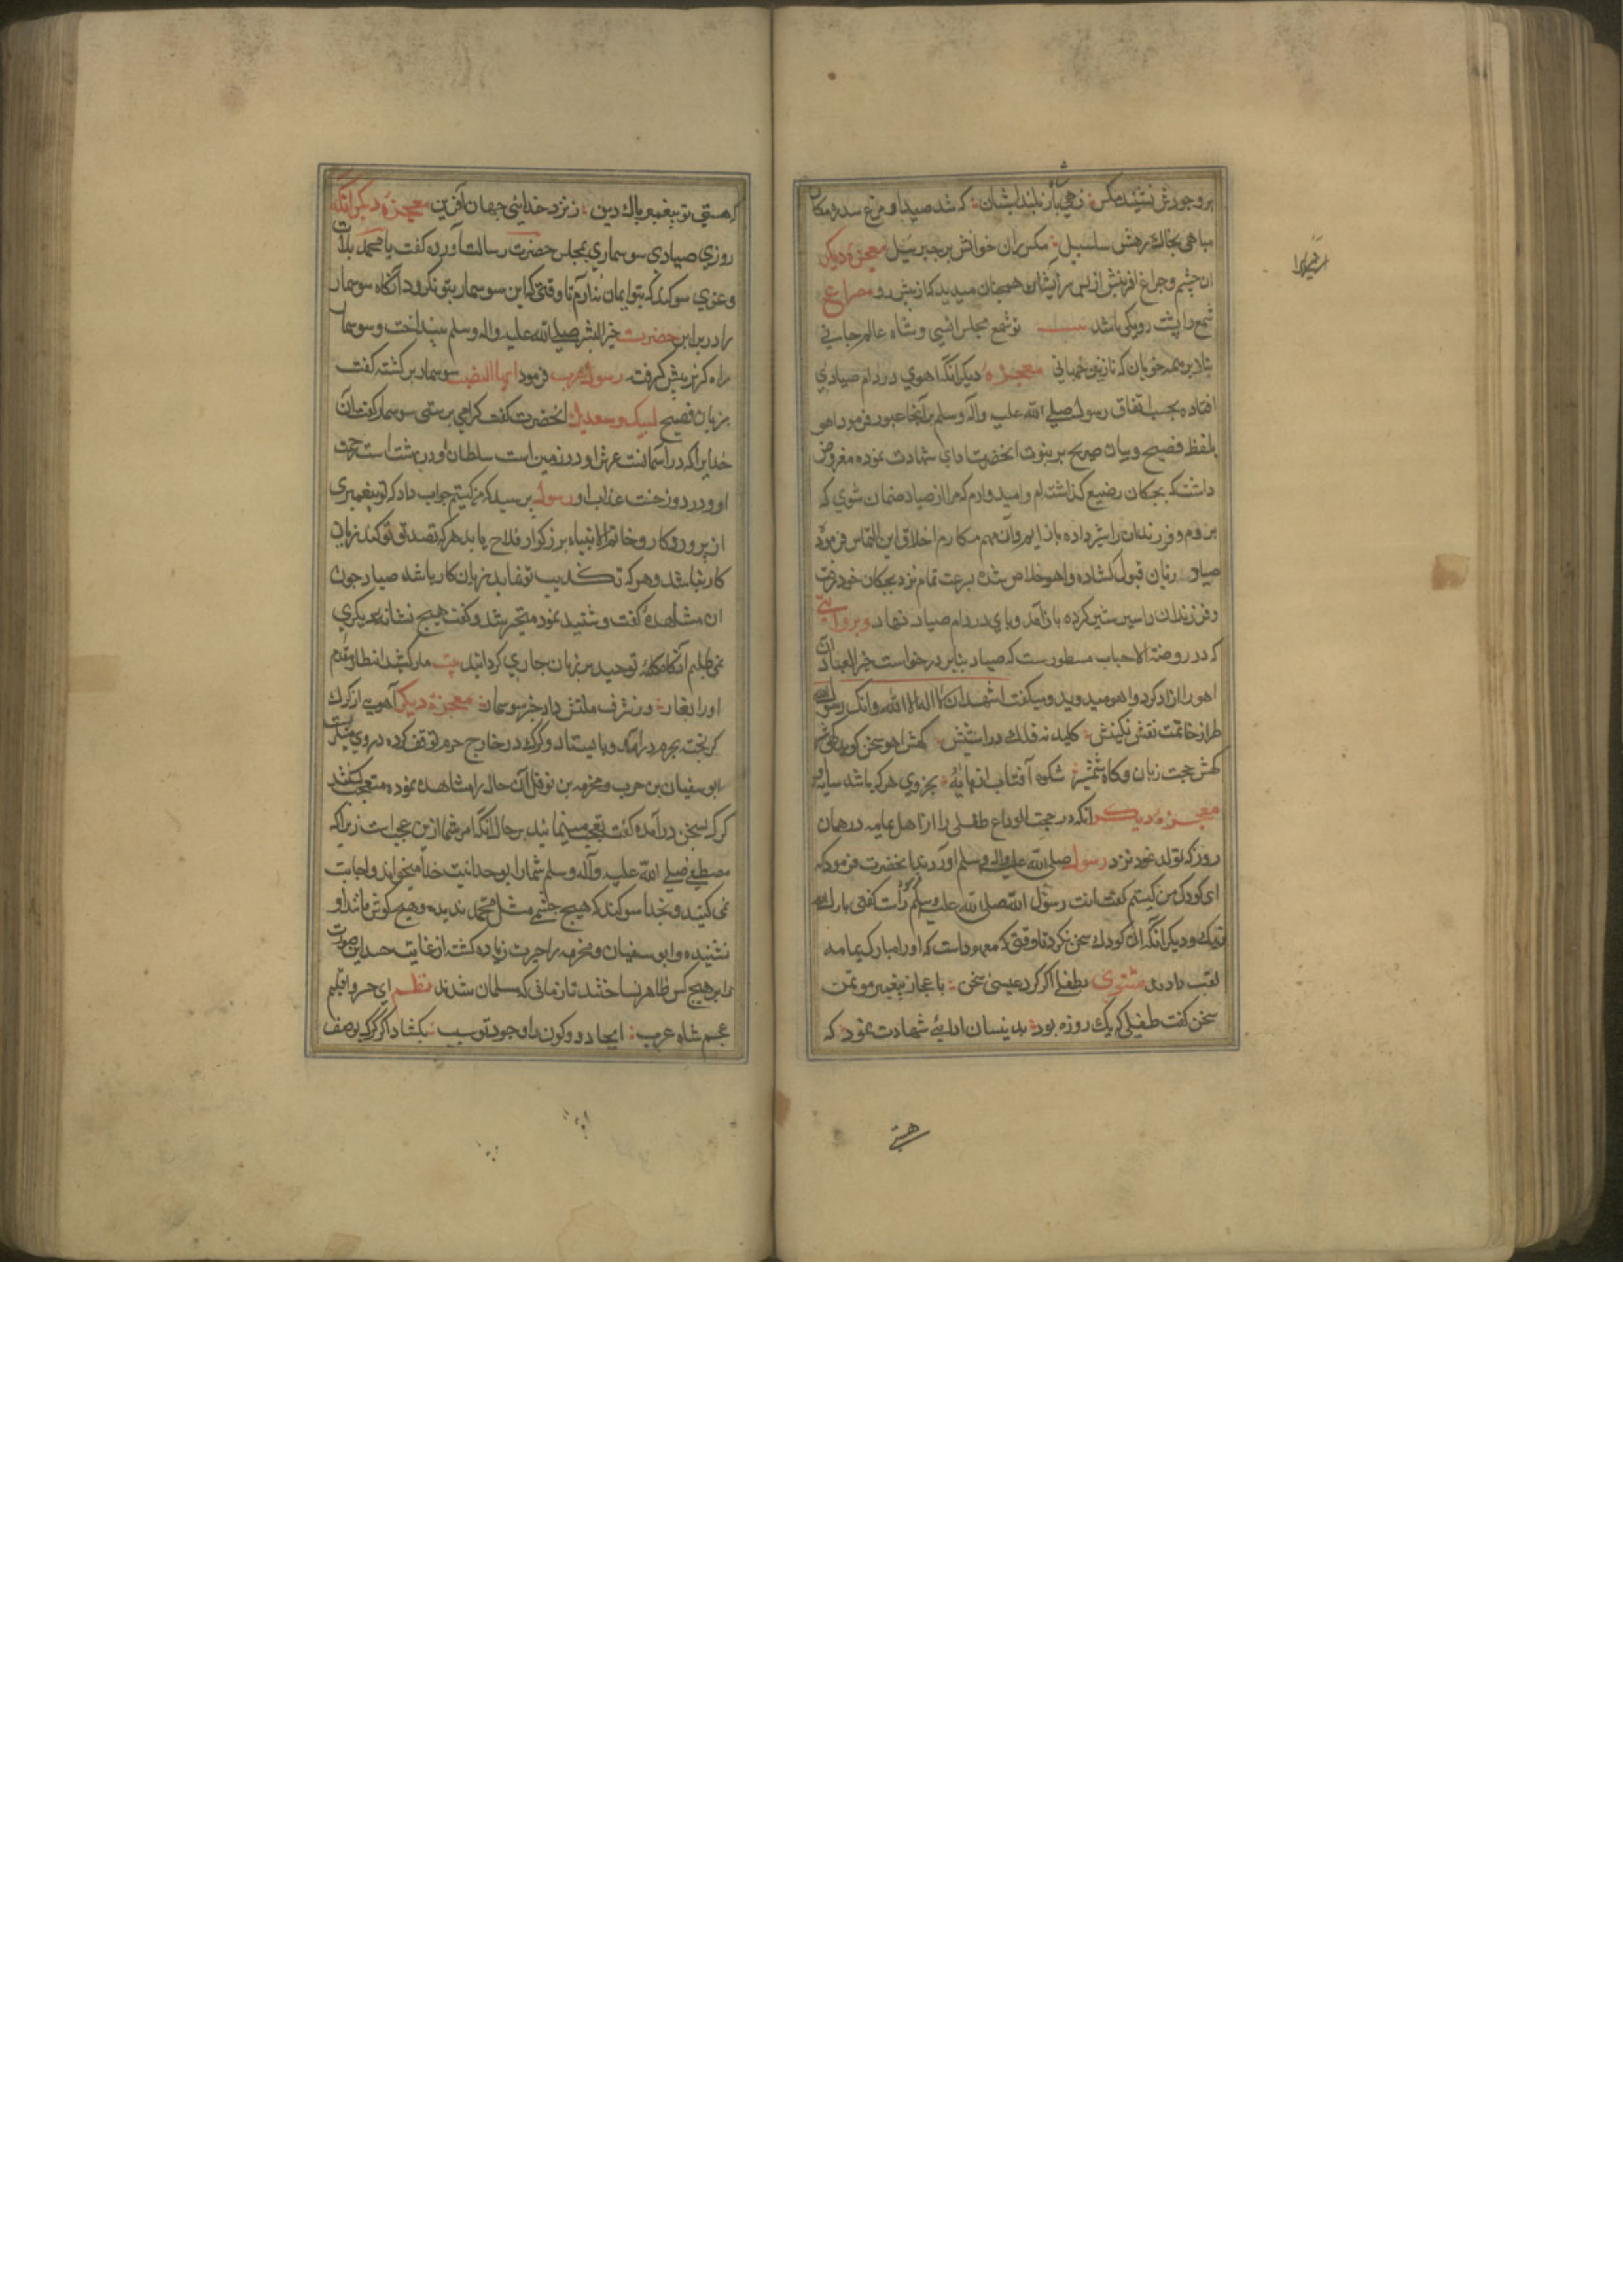 بر وجودش ننشیند مکس زهی باز بلند ایشان که شد صید او مرغ سدره مکان
مباهی بخاک رهش سلسبیل مکس ران خوانش پر جبرئیل معجزه دیکر
ان چشم و چراغ افرینش از پس سر ایشان همچنان میدید که از پیش رو مصراع
شمع را پشت و روی کی باشد بیت تو شمع مجلس انسی و شاه عالم جانی
معجزه دیکر انکه اهوی در دام صیادی
افتاده بحسب اتفاق رسول صلی الله علیه وآله وسلم بر آنجا عبور فرمود اهو
بلفظ فصیح و بیان صریح بر نبوت انحضرت ادای شهادت نموده معروض
داشت که بجکان رضیع کذاشته ام و امیدوارم که مرا از صیاد ضمان شوی که
بروم و فرزندان را شیر داده باز ایم وآن مهم مکارم اخلاق این التماس فرمود
صیاد زبان قبول کشاده و اهو خلاص شده بسرعت تمام نزد بجکان خود رفت
و فرزندان را سیر شیر کرده باز آمد و پای در دام صیاد نهاد و بروایتی
که در روضة الاحباب مسطورست که صیاد بنابر درخواست خیر العباد ان
اهو را ازاد کرد و اهو میدوید و میکفت اشهد ان لا اله الا الله وانک رسول الله
طراز خاتمت نقش نکینش کلید نه فلک در استینش کهش اهو سخن کوید
کهش حجت زبان و کاه شمشیر شکوه آفتاب هر که باشد سایه
معجزه دیکر انکه در حجة الوداع طفلی را از اهل یمامه در همان
روز که تولد نمود نزد رسول صلی الله علیه واله وسلم اوردند بانحضرت فرمود که
ای کودک من کیستم کفت انت رسول الله صلی الله علیه وسلم کفتی بارک الله
فیک و دیکر انکه ان کودک سخن نکرد تا وقتی که معهودست که او را مبارک یمامه
لقب دادند مثنوی بطفلی اکر کرد عیسی سخن باعجاز پیغمبر موتمن
سخن کفت طفلی که یک روزه بود بدینسان ادای شهادت نمود که
هستی
که هستی تو پیغمبر پاک دین ز نزد خدای جهان آفرین معجزه دیکر انکه
روزی صیادی سوسماری بمجلس حضرت رسالت آورده کفت یا محمد بلات
و عزی سوکند که بتو ایمان ندارم تا وقتی که این سوسمار بتو نکرود انکاه سوسمار
را در برابر حضرت خیر البشر صلی الله علیه واله وسلم بینداخت و سوسمار
راه کریز پیش کرفت رسول عرب فرمود ایها الضب سوسمار بر کشته کفت
بزبان فصیح لبیک و سعدیک انحضرت کفت کرا می پرستی سوسمار کفت آن
خدایرا که در آسمانست عرش او و در زمین است سلطان او و در بهشت است رحمت
او و در دوزخست عذاب او رسول پرسید که من کیستم جواب داد که تو پیغمبری
از پروردکار و خاتم الانبیاء بزرکوار فلاح یابد هر که تصدیق تو کند زیان
کار نباشد و هر که تکذیب تو نماید زیان کار باشد صیاد چون
ان مشاهده کفت و شنید نمود متحیر شد و کفت هیچ نشانه دیکری
نمی طلبم انکاه کلمه توحید بر زبان جاری کردانید بیت
معجزه دیکر آهویی از کرک
کریخته بحرم درآمد و بایستاد و کرک در خارج حرم توقف کرده
ابو سفیان بن حرب و مخرمه بن نوفل آن حال را مشاهده نموده متعجب کشتند
کرک بسخن درآمده کفت تعجب مینمائید بر حال انکه امر شما ازین عجب است زیرا که
مصطفی صلی الله علیه وآله وسلم شما را بوحدانیت خدا میخواند و اجابت
نمی کنید و بخدا سوکند که هیچ چشمی مثل محمد ندیده و هیچ کوش مانند او
نشنیده و ابو سفیان و مخرمه را حیرت زیاده کشته از غایت حسد این صورت
را بر هیچ کس ظاهر نساختند تا زمانی که مسلمان شدند نظم ای خسرو اقلیم
عجم شاه عرب ایجاد دو کون را وجود تو سبب بکشاد اکر کرک بوصف